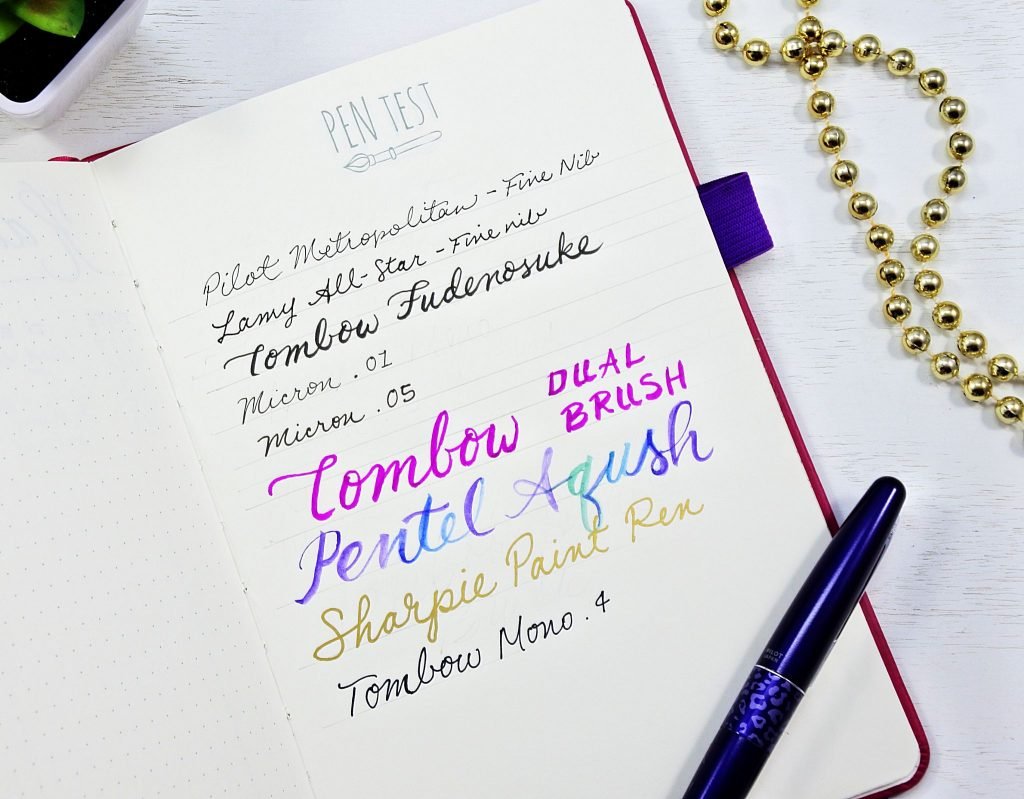 PEN TEST
Pilot Metropolitan - Fine Nib
Lamy All-Star - Fine nib
Tombow Fudenosuke
Micron .01
Micron .05
Tombow DUAL BRUSH
Pentel Aqush
Sharpie Paint Pen
Tombow Mono .4
PILOT
JAPAN